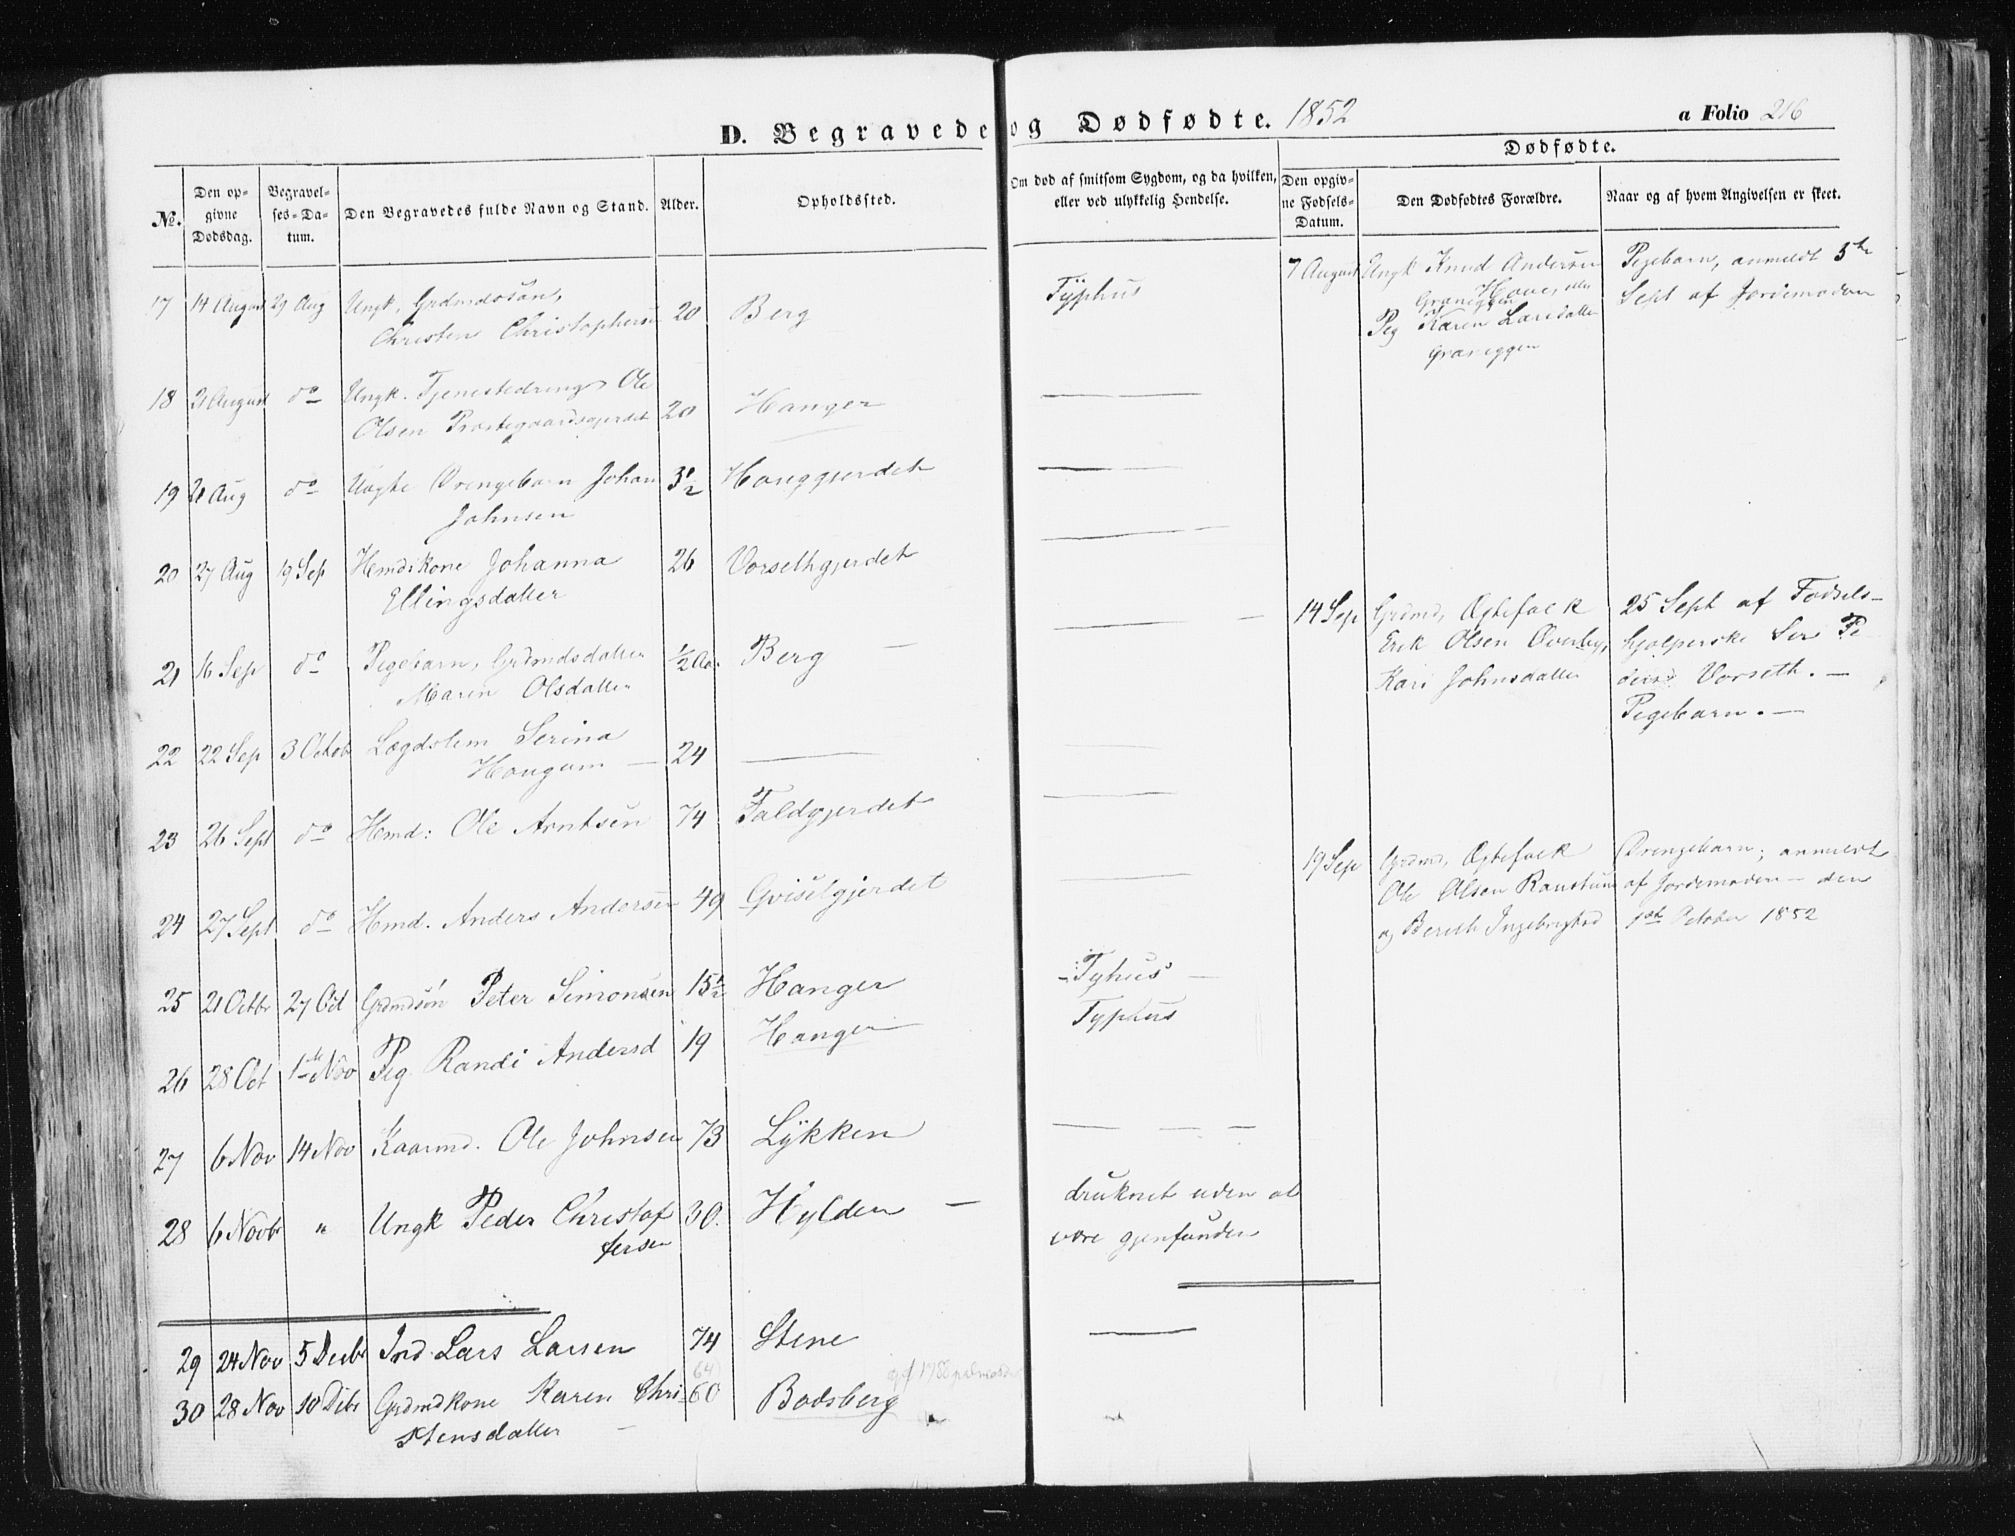 D. Begravede og Dødfødte. 1852
a Folio 216
Dødfødte.
No.
Den opgivne Dødsdag.
Begravelses-Datum.
Den Begravedes fulde Navn og Stand.
Alder.
Opholdssted.
Om død af smitsom Sygdom, og da hvilken,
eller ved ulykkelig Hendelse.
Den opgivne Fødsels-Datum.
Den Dødfødtes Forældre.
Naar og af hvem Angivelsen er skeet.
17 14 August 29 Aug Ungk. Grdmdssøn, 20 Berg Typhus
Christen Christophersen
7 August Ungk Knud Andersen Pigebarn, anmeldt 5te
Hove, Sept af Jordemoderen
Graneggen
Pig Karen Larsdatter
Graneggen
18 21 August do Ungk. Tjenestedreng Ole 20 Hanger
Olsen Præstegaardsgjerdet
19 21 Aug do Uægte Drengebarn Johan 3 1/2 Houggjerdet
Johnsen
20 27 Aug 19 Sep Hmdskone Johanna 26 Vorsethgjerdet
Ellingsdatter
14 Sep Grdmd, Ægtefolk 25 Sept af Fødsels-
Erik Olsen Overby, hjelperske
Kari Johnsdatter Vorseth. —
Pigebarn. —
21 16 Sep do Pigebarn, Grdmdsdatter 1/2 Aar Berg —
Maren Olsdatter
22 22 Sep 3 Octob Lægdslem Serina 24 —
Hougum —
23 26 Sept do Hmd: Ole Arntsen 74 Faldgjerdet
19 Sep Grdmd, Ægtefolk Drengebarn, anmeldt
Ole Olsen Ranstum af Jordemoderen — den
og Bereth Ingebrigtsd 1ste October 1852
24 27 Sept do Hmd. Anders Andersen 49 Gviselgjerdet
25 21 Octbr 27 Oct Grdmdsøn Peter Simonsen 15 1/2 Hanger — Tyhus —
26 28 Oct 1ste Nov Pig. Randi Andersd 19 Hanger Typhus
27 6 Nov 14 Nov Kaarmd. Ole Johnsen 73 Lykken
28 6 Novbr " Ungk Peder Christof 30. Hylden — druknet uden at
fersen være gjenfunden
29 24 Nov 5 Decbr Ind. Lars Larsen 74 Stene
30 28 Nov 10 Dcbr Grdmdkone Karen Chri- 60 Bodsberg
stensdatter —
64